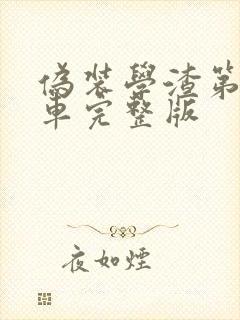 偽裝學渣第
車完整版
夜如煙